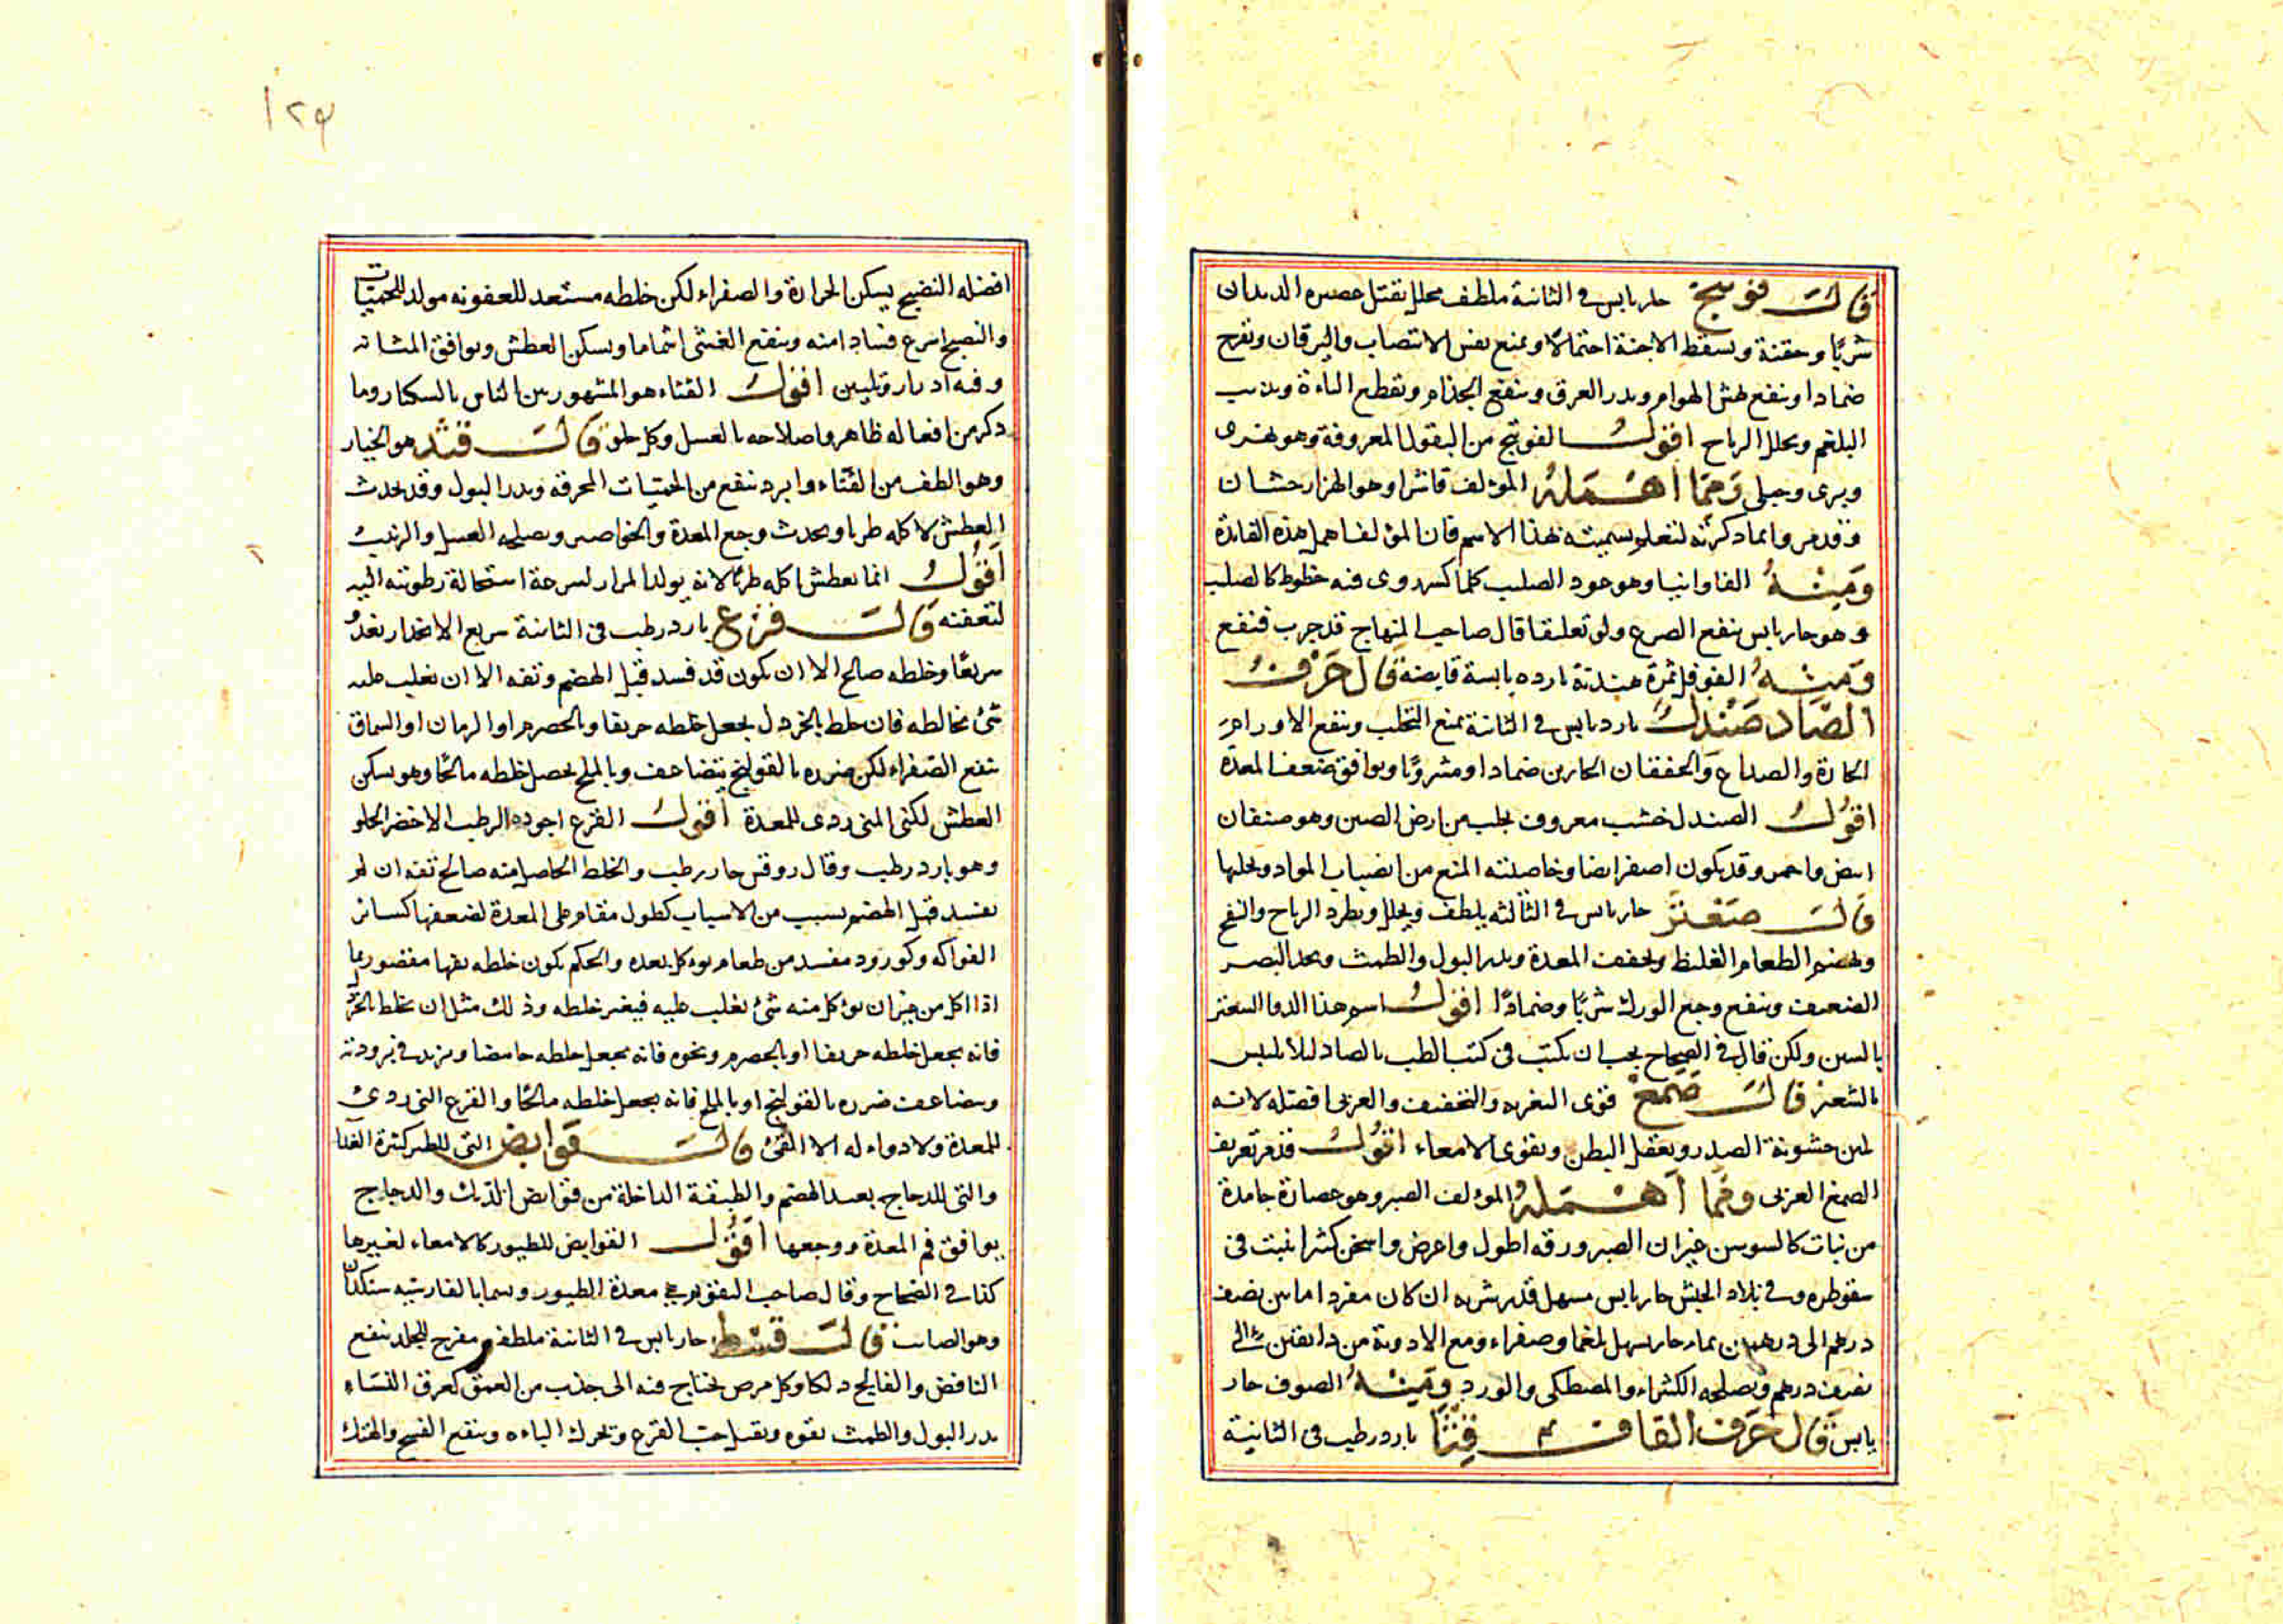 قال فوتنج حار يابس في الثانية ملطف محلل يقتل عصيره الديدان
شربا وحقنة ويسقط الاجنة احتمالا ويمنع نفس الانتصاب واليرقان وتفرح
ضمادا وينفع نهش الهوام ويدر العرق وينفع الجذام ويقطع الباءة ويذيب
البلغم ويحلل الرياح اقول الفوتنج من البقول المعروفة وهو نهرى
وبرى وجبلى ومما اهمله المؤلف فاشرا وهو الهزارحشان
وقد مر وانما ذكرته لتعلم تسميته بهذا الاسم فان المؤلف اهمل هذه الفائدة
ومنه الفاوانيا وهو عود الصليب كلما كسر روى فيه خطوط كالصليب
وهو حار يابس ينفع الصرع ولو تعليقا قال صاحب المنهاج قد جرب فنفع
ومنه الفوفل ثمرة هندية باردة يابسة قابضة قال حرف
الصاد صندل بارد يابس في الثانية يمنع التحلب وينفع الاورام
الحارة والصداع والخفقان الحارين ضمادا ومشروبا ويوافق ضعف المعدة
اقول الصندل خشب معروف يجلب من ارض الصين وهو صنفان
ابيض واحمر وقد يكون اصفر ايضا وخاصيته المنع من انصباب المواد وتحليها
قال صعتر حار يابس في الثالثة يلطف ويحلل ويطرد الرياح والنفخ
ويهضم الطعام الغليظ ويجفف المعدة ويدر البول والطمث ويحد البصر
الضعيف وينفع وجع الورك شربا وضمادا اقول اسم هذا الدوا السعتر
بالسين ولكن قال في الصحاح يجب ان يكتب في كتب الطب بالصاد ليلا يلتبس
بالشعير قال صمغ قوى التغرية والتجفيف والعربى افضله لانه
يلين خشونة الصدر ويعقل البطن ويقوى الامعاء اقول قد مر تعريف
الصمغ العربى ومما اهمله المؤلف الصبر وهو عصارة جامدة
من نبات كالسوسن غير ان الصبر ورقه اطول واعرض واسخن كثيرا ينبت في
سقوطره وفي بلاد الحبش حار يابس مسهل قدر شربه ان كان مفردا ما بين نصف
درهم الى درهمين بماء حار يسهل بلغما وصفراء ومع الادوية من دانقين الى
نصف درهم ويصلحه الكثيراء والمصطكى والورد ومنه الصوف حار
يابس قال حرف القاف قثا بارد رطب فى الثانية
١٢٩
افضله النضيج يسكن الحرارة والصفراء لكن خلطه مستعد للعفونه مولد للحميات
والنضيج اسرع فسادا منه وينفع الغشى اشماما ويسكن العطش ويوافق المثانة
وفيه ادرار وتليين اقول القثاء هو المشهور بين الناس بالسكار وما
ذكر من افعاله ظاهر واصلاحه بالعسل وكل حلو قال قثد هو الخيار
وهو الطف من القثاء وابرد ينفع من الحميات المحرقة ويدر البول وقد يحدث
العطش لاكله طريا ويحدث وجع المعدة والخواصر ويصلحه العسل والزبيب
اقول انما يعطش اكله طريا لانه يولد المرار لسرعة استحالة رطوبته اليه
لتعفنه قال قرع بارد رطب فى الثانية سريع الانحدار يغذو
سريعا وخلطه صالح الا ان يكون قد فسد قبل الهضم وتفه الا ان يغلب عليه
شئ يخالطه فان خلط بالخردل يجعل خلطه حريفا وبالحصرم او الرمان او السماق
ينفع الصفراء لكن ضرره بالقولنج يتضاعف وبالملح يحصل خلطه مالحا وهو يسكن
العطش لكن النى ردى للمعدة اقول القرع اجوده الرطب الاخضر الحلو
وهو بارد رطب وقال روفس حار رطب والخلط الحاصل منه صالح تفه ان لم
يفسد قبل الهضم بسبب من الاسباب كطول مقامه على المعدة لضعفها كسائر
الفواكه وكورود مفسد من طعام يوكل بعده والحكم بكون خلطه تفها مقصور بما
اذا اكل من غير ان يؤكل منه شئ يغلب عليه فيغير خلطه وذلك مثل ان يخلط بالخردل
فانه يجعل خلطه حريفا او بالحصرم ونحوه فانه يجعل خلطه حامضا ويزيد في برودته
ويضاعف ضرره بالقولنج او بالملح فانه يجعل خلطه مالحا والقرع النى ردئ
للمعدة ولا دواء له الا القئ قال قوانض التى للطير كثيرة الغذا
والتى للدجاج بعيد الهضم والطبقة الداخلة من قوانض الديك والدجاج
يوافق فم المعدة ووجعها اقول القوانض للطيور كالامعاء لغيرها
كذا في الصحاح وقال صاحب التقويم هي معدة الطيور وتسمى بالفارسية سنكدان
وهو الصائب قال قسط حار يابس في الثانية ملطف مقرح للجلد ينفع
النافض والفالج دلكا وكل مرض يحتاج فيه الى جذب من العمق كعرق النساء
يدر البول والطمث بقوه ويقتل حب القرع ويحرك الباءه وينفع الفسخ والهتك